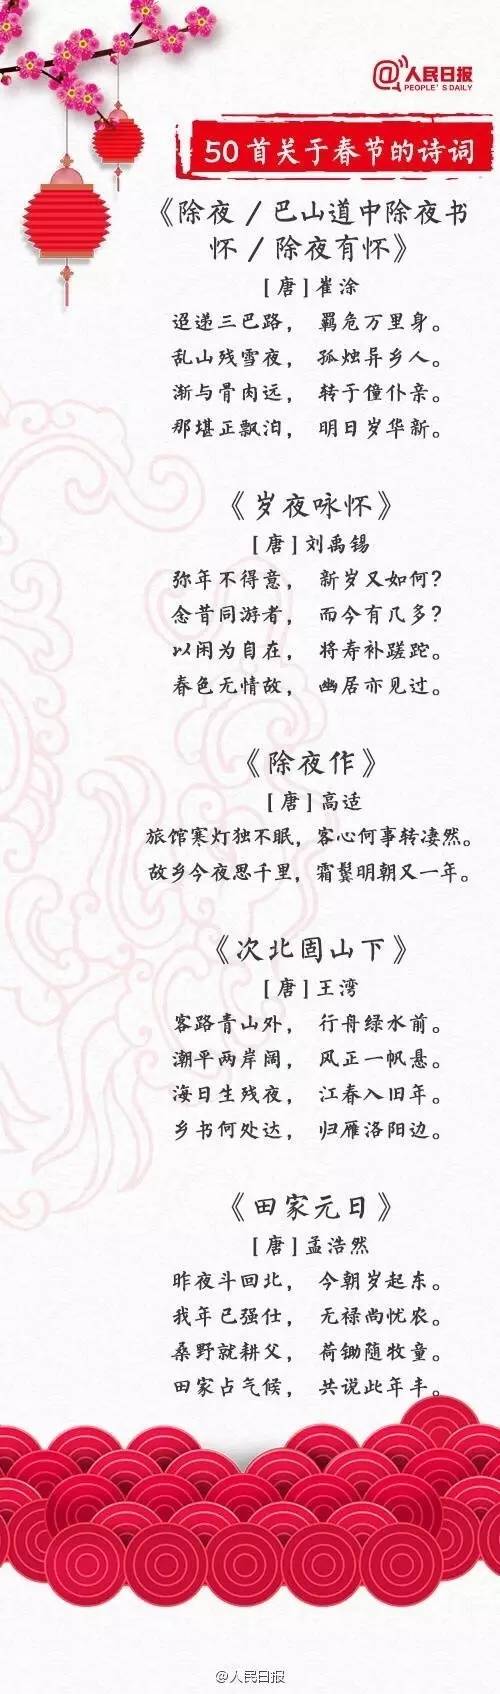 @人民日报
PEOPLE'S DAILY
50首关于春节的诗词
《除夜/巴山道中除夜书
怀/除夜有怀》
[唐]崔涂
迢递三巴路，羁危万里身。
乱山残雪夜，孤烛异乡人。
渐与骨肉远，转于僮仆亲。
那堪正飘泊，明日岁华新。
《岁夜咏怀》
[唐]刘禹锡
弥年不得意，新岁又如何？
念昔同游者，而今有几多？
以闲为自在，将寿补蹉跎。
春色无情故，幽居亦见过。
《除夜作》
[唐]高适
旅馆寒灯独不眠，客心何事转凄然。
故乡今夜思千里，霜鬓明朝又一年。
《次北固山下》
[唐]王湾
客路青山外，行舟绿水前。
潮平两岸阔，风正一帆悬。
海日生残夜，江春入旧年。
乡书何处达，归雁洛阳边。
《田家元日》
[唐]孟浩然
昨夜斗回北，今朝岁起东。
我年已强仕，无禄尚忧农。
桑野就耕父，荷锄随牧童。
田家占气候，共说此年丰。
@人民日报